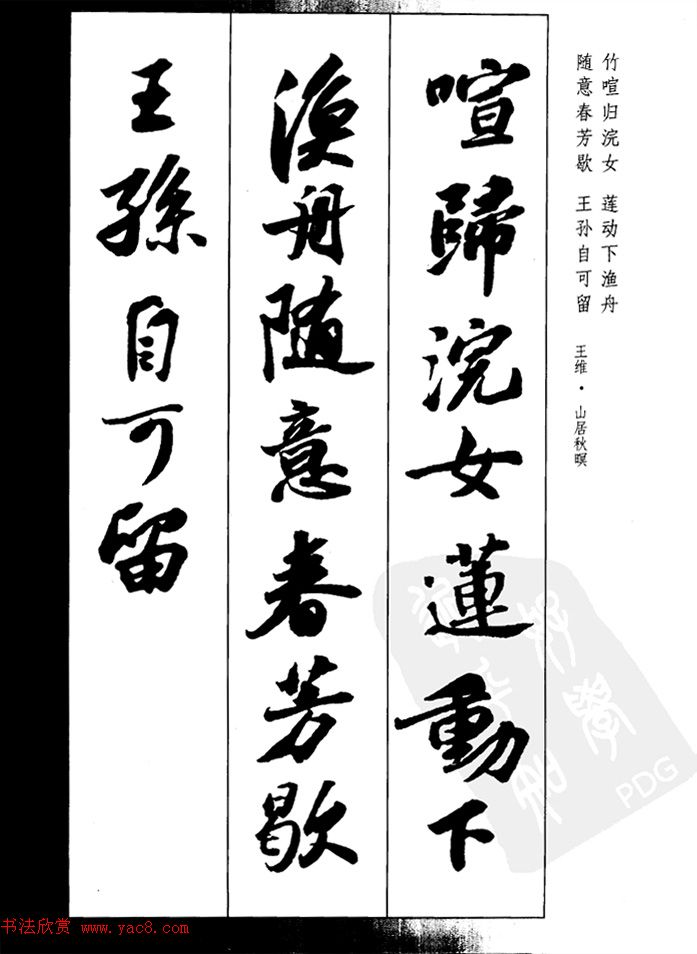 竹喧归浣女　莲动下渔舟
随意春芳歇　王孙自可留
王维·山居秋暝
喧歸浣女蓮動下
漁舟随意春芳歇
王孫自可留
PDG
书法欣赏 www.yac8.com